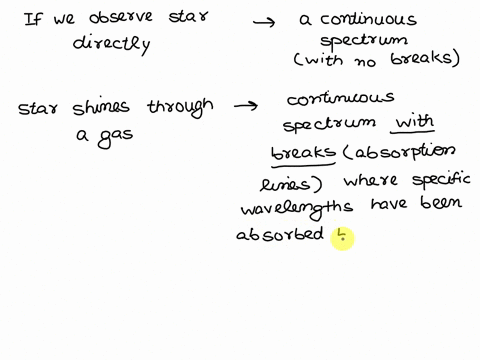 If we observe star → a continuous
directly spectrum
(with no breaks)
star shines through → continuous
a gas spectrum with
breaks (absorption
lines) where specific
wavelengths have been
absorbed